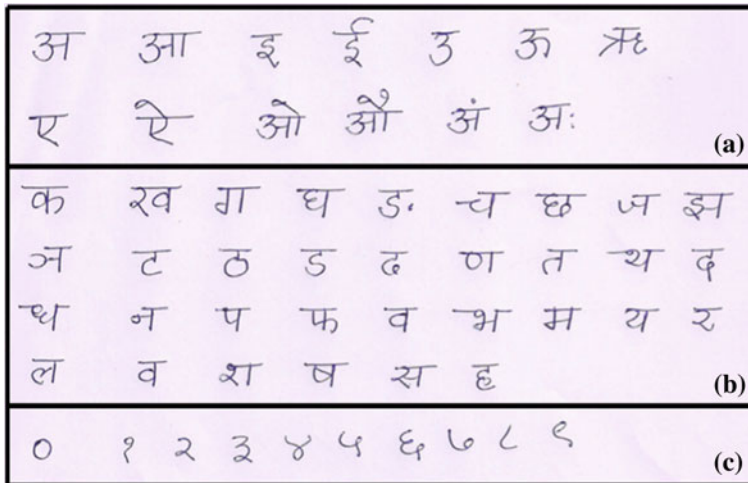 अ आ इ ई उ ऊ ऋ
ए ऐ ओ औ अं अः (a)
क ख ग घ ङ च छ ज झ
ञ ट ठ ड ढ ण त थ द
ध न प फ व भ म य र
ल व श ष स ह (b)
० १ २ ३ ४ ५ ६ ७ ८ ९ (c)